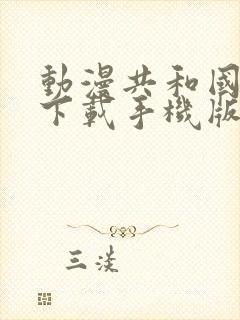 動漫共和國
下載手機版
三淡